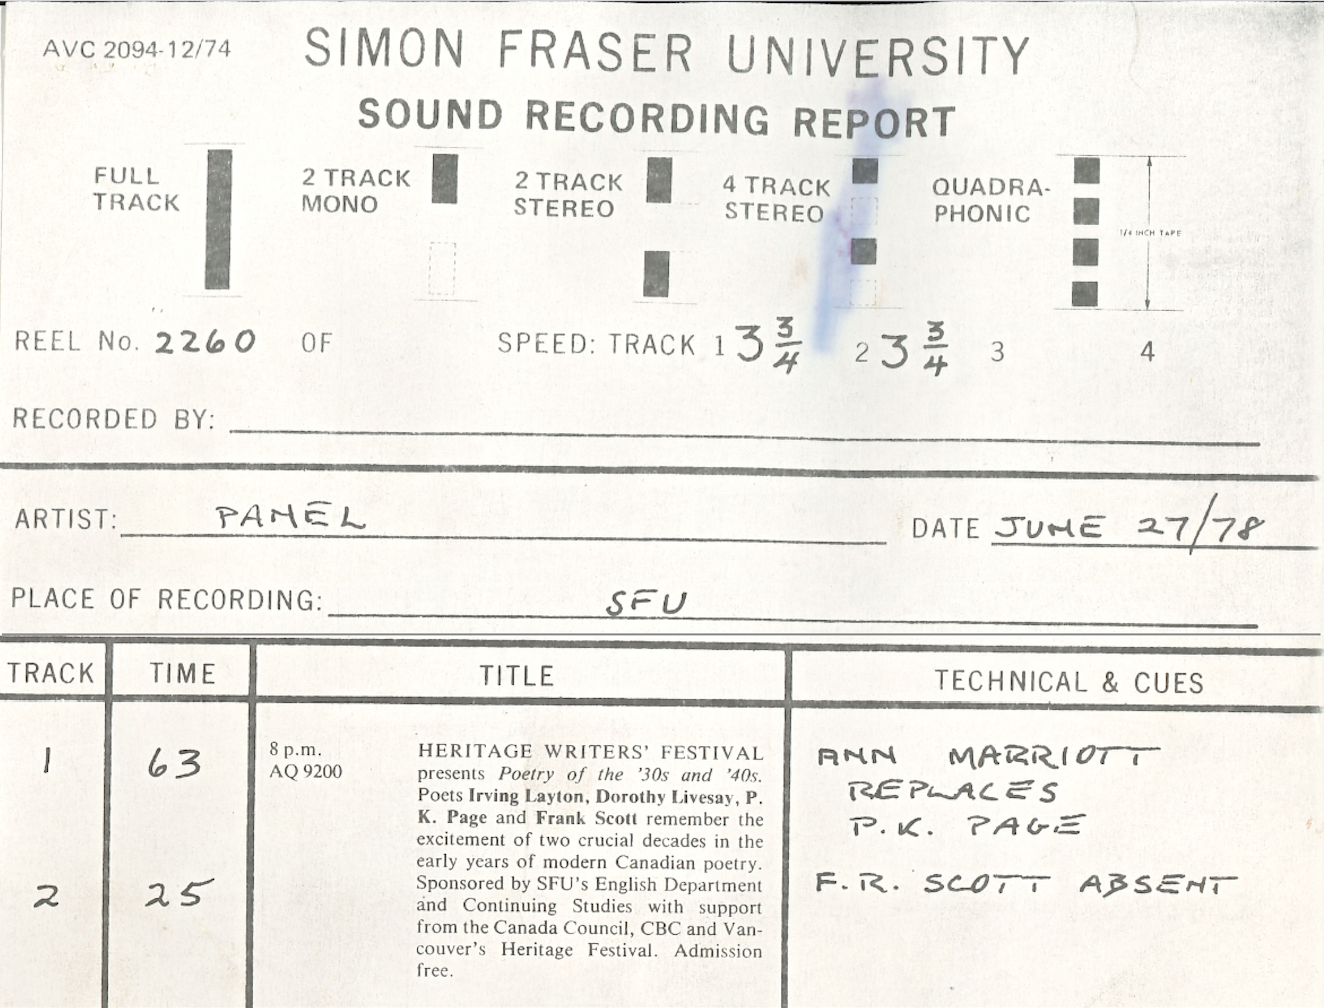 AVC 2094-12/74
SIMON FRASER UNIVERSITY
SOUND RECORDING REPORT
FULL TRACK
2 TRACK MONO
2 TRACK STEREO
4 TRACK STEREO
QUADRA-PHONIC
1/4 INCH TAPE
REEL No. 2260 OF SPEED: TRACK 1 3 3/4 2 3 3/4 3 4
RECORDED BY:
ARTIST: PANEL DATE JUNE 27/78
PLACE OF RECORDING: SFU
TRACK TIME TITLE TECHNICAL & CUES
1 63
8 p.m.
AQ 9200
HERITAGE WRITERS' FESTIVAL
presents Poetry of the '30s and '40s.
Poets Irving Layton, Dorothy Livesay, P.
K. Page and Frank Scott remember the
excitement of two crucial decades in the
early years of modern Canadian poetry.
Sponsored by SFU's English Department
and Continuing Studies with support
from the Canada Council, CBC and Van-
couver's Heritage Festival. Admission
free.
ANN MARRIOTT
REPLACES
P.K. PAGE
2 25
F.R. SCOTT ABSENT